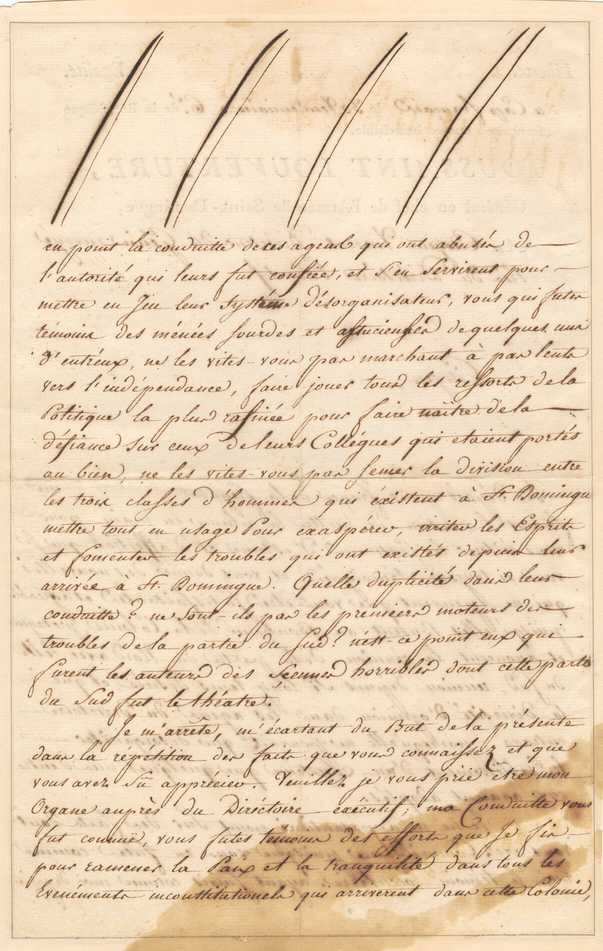 en point la conduitte de ces agens qui ont abusée de
l'autorité qui leurs fut confiée, et s'en Servirent pour
mettre en Jeu leur Systéme désorganisateur, vous qui futes
témoins des ménées sourdes et astucieuses de quelques uns
d'entréux, ne les vites-vous pas marchant à pas lents
vers l'indépendance, faire jouer tous les ressorts de la
Politique la plus rafinée pour faire naitre de la
défiance sur ceux de leurs Collégues qui etaient portés
au bien, ne les vites-vous pas semer la division entre
les trois classes d'hommes qui éxistent à St. Domingue
mettre tout en usage Pour exaspérer, irriter les Esprits
et fomenter les troubles qui ont existés depuis leur
arrivée à St. Domingue. Quelle duplicité dans leur
conduitte? ne sont-ils pas les premiers moteurs des
troubles de la partie du Sud? n'est-ce point eux que
furent les auteurs des Scennes horribles dont cette partie
du Sud fut le théatre.
Je m'arrête, m'écartant du But de la présente
dans la répétition des faits que vous connaissez et que
vous avez Su apprécier. Veuillez je vous prie être mon
Organe auprès du Diréctoire exécutif; ma Conduitte vous
fut connue, vous futes témoins des efforts que Je fis
pour ramener la Paix et la tranquilité dans tous les
Evenéments inconstitutionels qui arriverent dans cette Colonie,
TOUSSAINT LOUVERTURE,
Général en chef de l'Armée de Saint-Domingue,